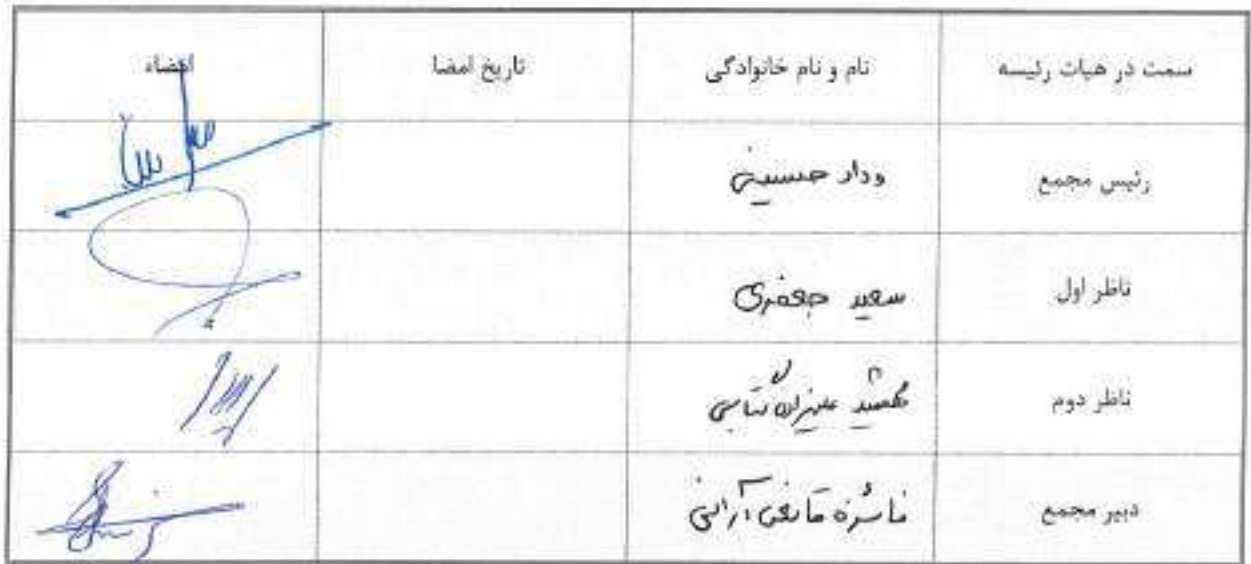 سمت در هیات رئیسه نام و نام خانوادگی تاریخ امضا امضاء
رئیس مجمع وداد حسینی
ناظر اول سعید جعفری
ناظر دوم علیزاده
دبیر مجمع فائزه قانعی آرانی